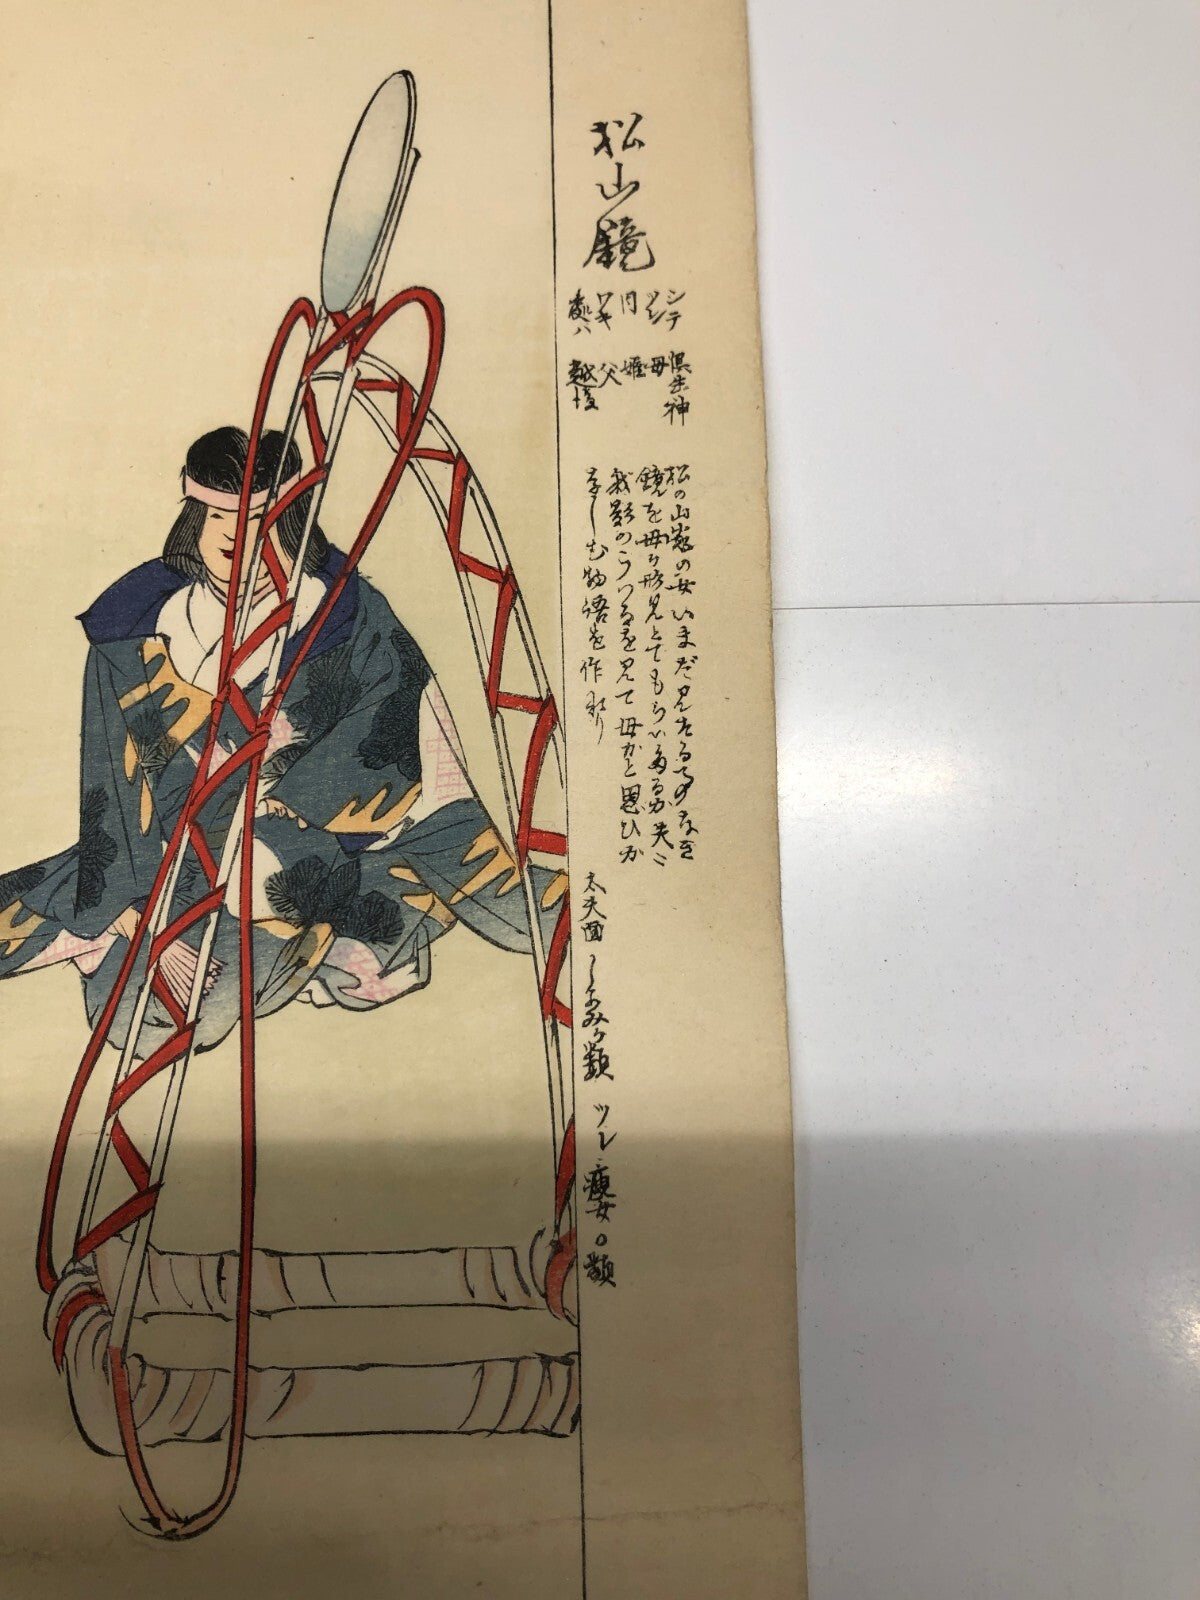 松山鏡
シテ 倶生神
ツレ 母
同 姫
ワキ 父
処ハ 越後
松の山家の女いまだ見たる事のなき
鏡を母の形見とてもらい夫ニ
我影のうつるを見て母かと思ひ
なし物語を作れり
太夫面 しかみの類 ツレ 痩女の類